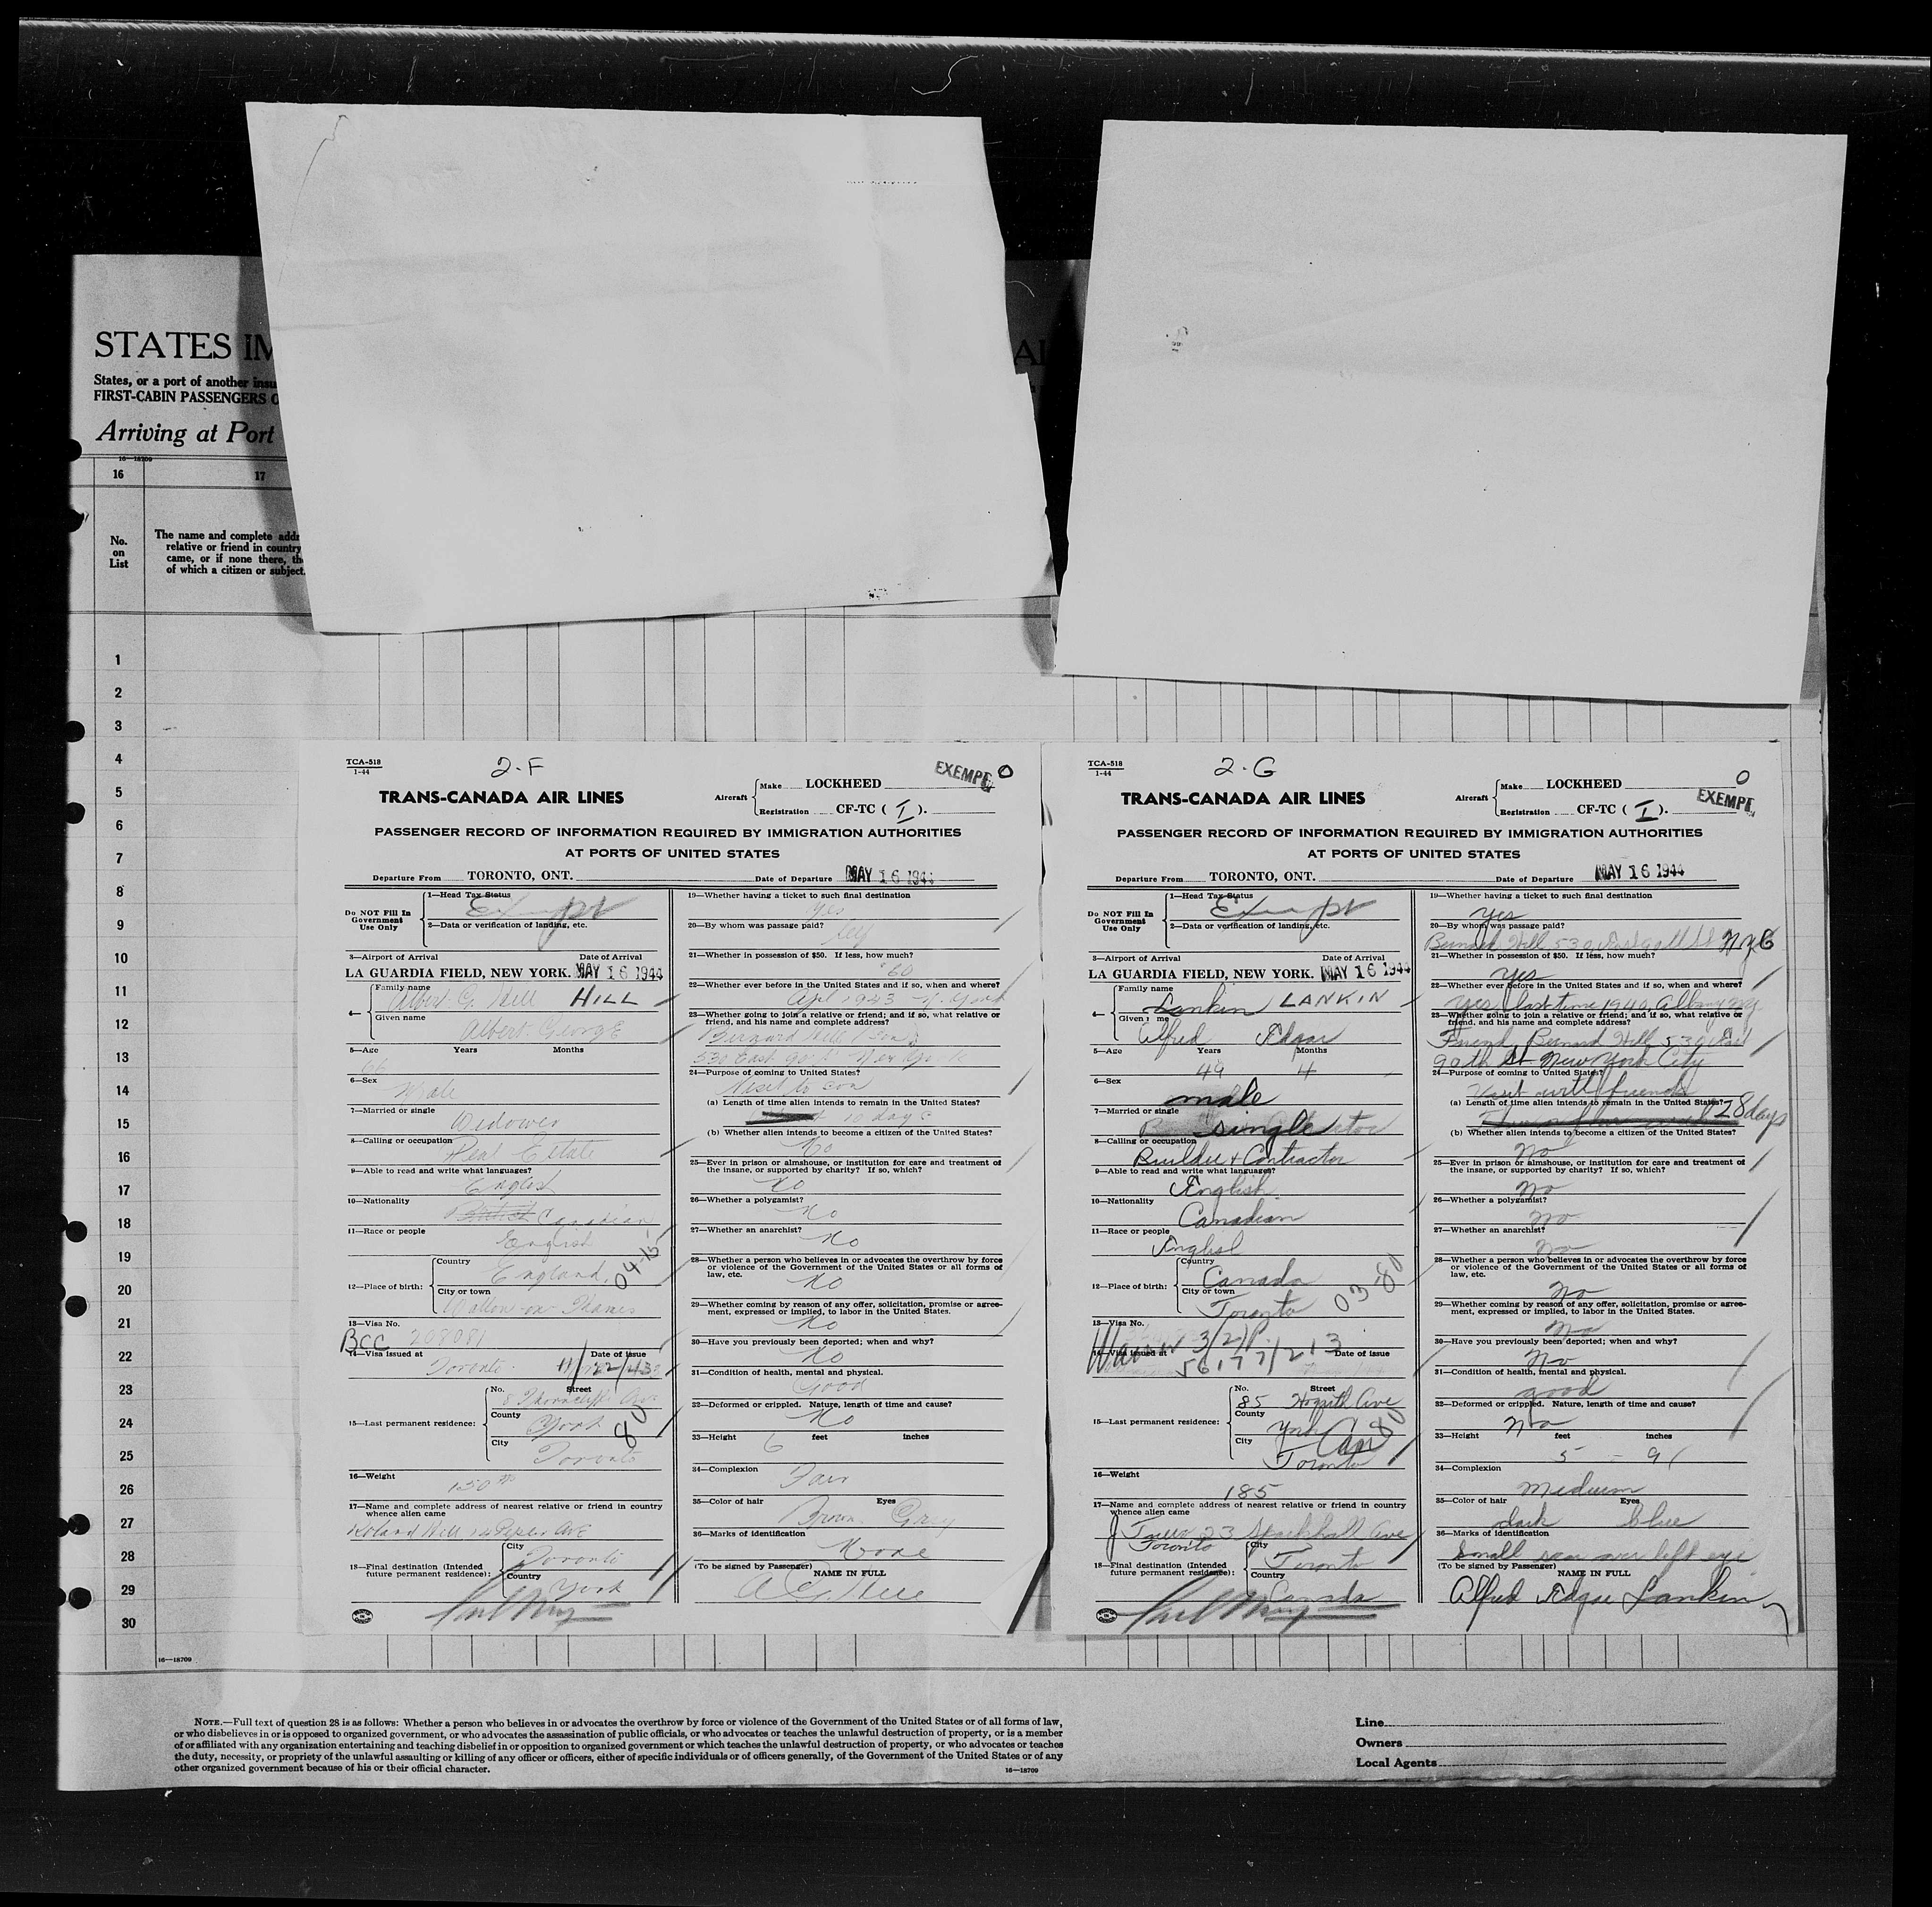 STATES IM
AL
States, or a port of another insu
FIRST-CABIN PASSENGERS O
Arriving at Port
16—18709
16 17
No. on List
The name and complete addr
relative or friend in country
came, or if none there, th
of which a citizen or subject.
1
2
3
4
5
6
7
8
9
10
11
12
13
14
15
16
17
18
19
20
21
22
23
24
25
26
27
28
29
30
16—18709
TCA-518
1-44
2-F
EXEMPT
O
TRANS-CANADA AIR LINES
Aircraft
Make LOCKHEED
Registration CF-TC ( I ).
PASSENGER RECORD OF INFORMATION REQUIRED BY IMMIGRATION AUTHORITIES
AT PORTS OF UNITED STATES
Departure From TORONTO, ONT. Date of Departure MAY 16 1944
Do NOT Fill In
Government
Use Only
1—Head Tax Status
Exempt
2—Data or verification of landing, etc.
3—Airport of Arrival Date of Arrival
LA GUARDIA FIELD, NEW YORK. MAY 16 1944
4—
Family name
Albert G. Hill HILL
Given name
Albert George
5—Age Years Months
66
6—Sex
Male
7—Married or single
Widower
8—Calling or occupation
Real Estate
9—Able to read and write what languages?
English
10—Nationality
British Canadian
11—Race or people
English
12—Place of birth:
Country
England
04-15
City or town
Walton-on-Thames
13—Visa No.
BCC 208081
14—Visa issued at Date of issue
Toronto 11/22/43
15—Last permanent residence:
No. Street
8 Thorncliffe Ave
County
York
80
City
Toronto
16—Weight
150
17—Name and complete address of nearest relative or friend in country
whence alien came
Roland Hill
18—Final destination (Intended
future permanent residence):
City
Toronto
Country
York
19—Whether having a ticket to such final destination
Yes
20—By whom was passage paid?
Self
21—Whether in possession of $50. If less, how much?
60
22—Whether ever before in the United States and if so, when and where?
Apl 1943 N. York
23—Whether going to join a relative or friend; and if so, what relative or
friend, and his name and complete address?
Bernard Hill (Son)
530 East 90 St New York
24—Purpose of coming to United States?
Visit to son
(a) Length of time alien intends to remain in the United States?
days
(b) Whether alien intends to become a citizen of the United States?
No
25—Ever in prison or almshouse, or institution for care and treatment of
the insane, or supported by charity? If so, which?
No
26—Whether a polygamist?
No
27—Whether an anarchist?
No
28—Whether a person who believes in or advocates the overthrow by force
or violence of the Government of the United States or all forms of
law, etc.
No
29—Whether coming by reason of any offer, solicitation, promise or agree-
ment, expressed or implied, to labor in the United States.
No
30—Have you previously been deported; when and why?
No
31—Condition of health, mental and physical.
Good
32—Deformed or crippled. Nature, length of time and cause?
No
33—Height 6 feet inches
34—Complexion
Fair
35—Color of hair Eyes
Brown Gray
36—Marks of identification
None
(To be signed by Passenger) NAME IN FULL
A G Hill
TCA-518
1-44
2-G
O
EXEMPT
TRANS-CANADA AIR LINES
Aircraft
Make LOCKHEED
Registration CF-TC ( I ).
PASSENGER RECORD OF INFORMATION REQUIRED BY IMMIGRATION AUTHORITIES
AT PORTS OF UNITED STATES
Departure From TORONTO, ONT. Date of Departure MAY 16 1944
Do NOT Fill In
Government
Use Only
1—Head Tax Status
Exempt
2—Data or verification of landing, etc.
3—Airport of Arrival Date of Arrival
LA GUARDIA FIELD, NEW YORK. MAY 16 1944
4—
Family name
Lankin LANKIN
Given name
Alfred Edgar
5—Age Years Months
49 4
6—Sex
male
7—Married or single
single
8—Calling or occupation
Builder & Contractor
9—Able to read and write what languages?
English
10—Nationality
Canadian
11—Race or people
English
12—Place of birth:
Country
Canada
03 80
City or town
Toronto
13—Visa No.
Waiver 3/2/P.
14—Visa issued at Date of issue
56177/213
15—Last permanent residence:
No. Street
85 Hogarth Ave
County
York Can 80
City
Toronto
16—Weight
185
17—Name and complete address of nearest relative or friend in country
whence alien came
23 Sparkhall Ave
Toronto
18—Final destination (Intended
future permanent residence):
City
Toronto
Country
Canada
19—Whether having a ticket to such final destination
yes
20—By whom was passage paid?
Bernard Hill 530 East 90th St N.Y.C
21—Whether in possession of $50. If less, how much?
yes
22—Whether ever before in the United States and if so, when and where?
yes last time 1940 Albany N.Y.
23—Whether going to join a relative or friend; and if so, what relative or
friend, and his name and complete address?
Friend, Bernard Hill 530 East
90th St New York City
24—Purpose of coming to United States?
Visit with friends
(a) Length of time alien intends to remain in the United States?
28 days
(b) Whether alien intends to become a citizen of the United States?
No
25—Ever in prison or almshouse, or institution for care and treatment of
the insane, or supported by charity? If so, which?
No
26—Whether a polygamist?
No
27—Whether an anarchist?
No
28—Whether a person who believes in or advocates the overthrow by force
or violence of the Government of the United States or all forms of
law, etc.
No
29—Whether coming by reason of any offer, solicitation, promise or agree-
ment, expressed or implied, to labor in the United States.
No
30—Have you previously been deported; when and why?
No
31—Condition of health, mental and physical.
good
32—Deformed or crippled. Nature, length of time and cause?
No
33—Height feet inches
5 - 9
34—Complexion
Medium
35—Color of hair Eyes
dark blue
36—Marks of identification
Small scar over left eye
(To be signed by Passenger) NAME IN FULL
Alfred Edgar Lankin
NOTE.—Full text of question 28 is as follows: Whether a person who believes in or advocates the overthrow by force or violence of the Government of the United States or of all forms of law,
or who disbelieves in or is opposed to organized government, or who advocates the assassination of public officials, or who advocates or teaches the unlawful destruction of property, or is a member
of or affiliated with any organization entertaining and teaching disbelief in or opposition to organized government or which teaches the unlawful destruction of property, or who advocates or teaches
the duty, necessity, or propriety of the unlawful assaulting or killing of any officer or officers, either of specific individuals or of officers generally, of the Government of the United States or of any
other organized government because of his or their official character.
16—18709
Line
Owners
Local Agents